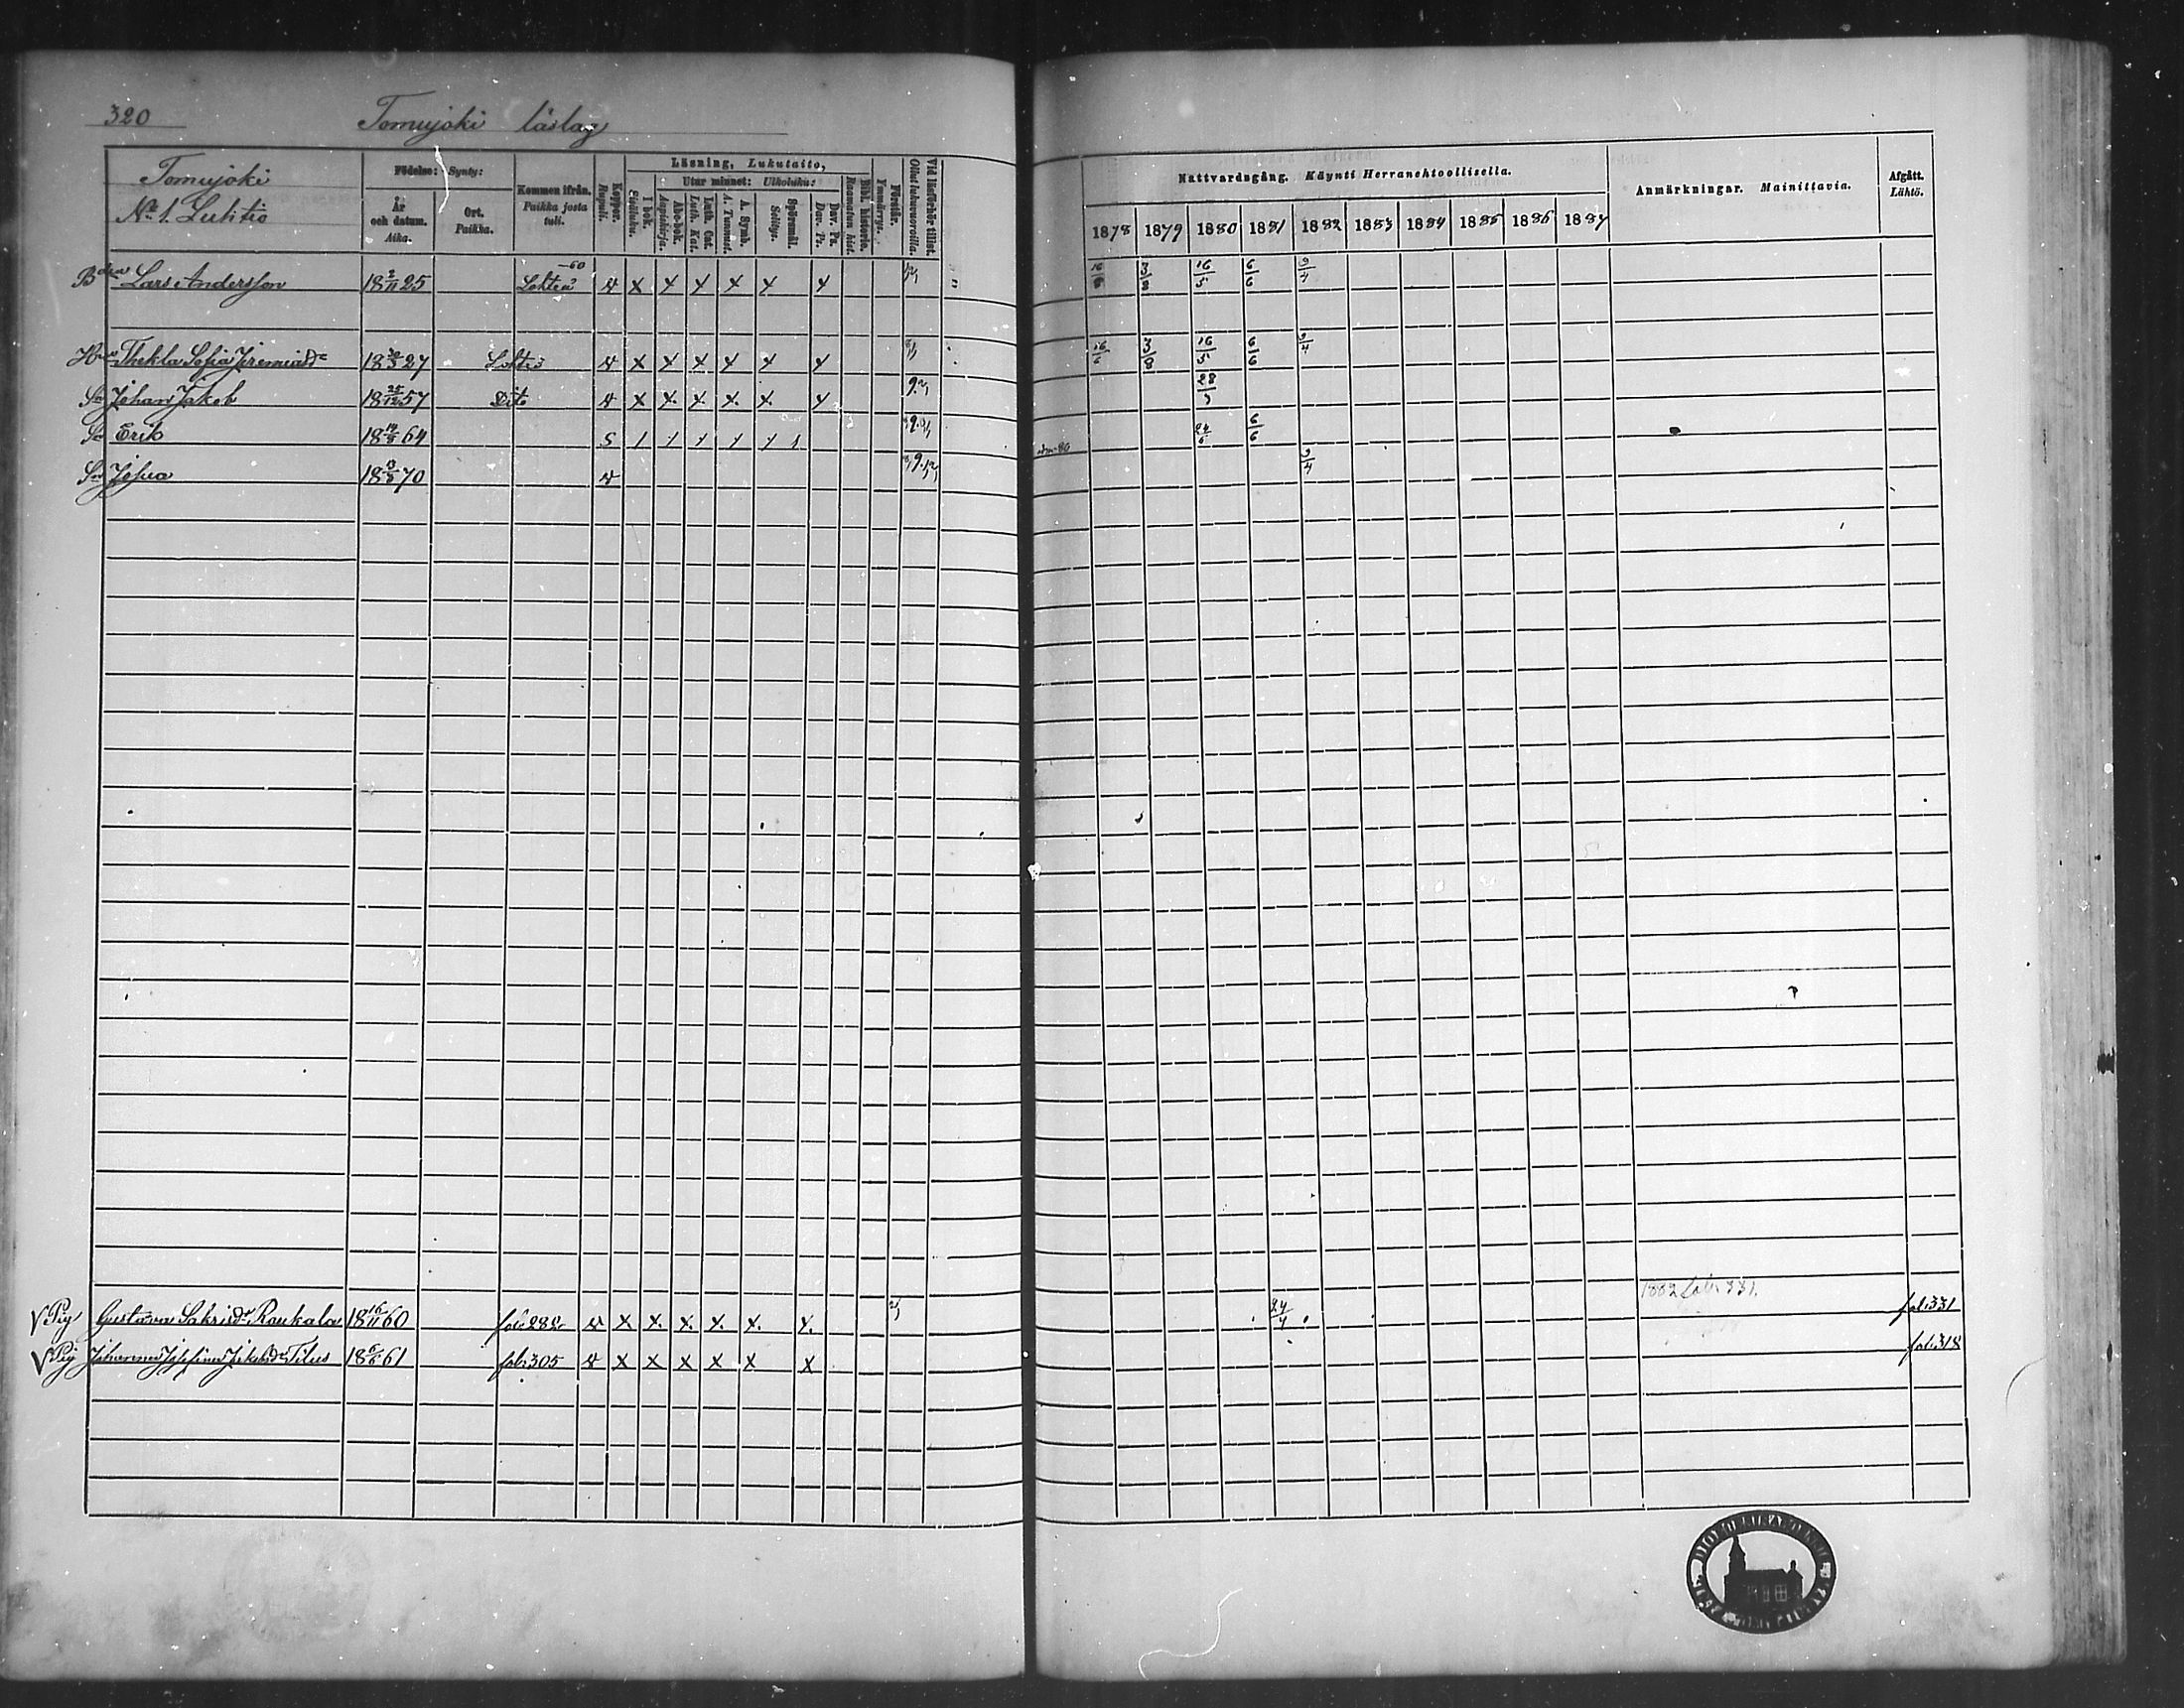 320 Tomujoki läslag
Tomujoki
No 1. Luhtio
Födelse: Synty:
År och datum. Aika.
Ort. Paikka.
Kommen ifrån. Paikka josta tuli.
Koppor. Rupuli.
Läsning, Lukutaito,
I bok. Sisäluku.
Utur minnet: Ulkoluku:
Abc-bok. Aapiskirja.
Luth. Cat. Luth. Kat.
A. Symb. A. Tunnust.
Spörsmål. Selitys.
Dav. Ps. Dav. Ps.
Bibl. historia. Raamatun hist.
Förstår. Ymmärrys.
Vid läsförhör tillst. Ollut lukuvuoroilla.
Nattvardsgång. Käynti Herranehtoollisella.
1878 1879 1880 1881 1882 1883 1884 1885 1886 1887
Anmärkningar. Mainittavia.
Afgått. Lähtö.
Lars Andersson 18 2/11 25 -60 Lohteå v x x x x x x 3/8 16/5 6/6 9/4
Thekla Sofia Jeremiasdr 27 Lohteå v x x x x x x 16/6 3/8 16/5 6/6 9/4
Sn Johan Jakob 18 25/12 57 Dito v x x x x x x
Sn Erik 64 s 24/6 6/6
Sn Josua 70 v 9/4
1882 fol. 331.
V Pig Gustava Sakrisdr Raukala 18 16/11 60 fol: 282 v x x x x x x 24/4 fol: 331
V Pig Johanna Josefina Jakobsdr Titus 18 6/6 61 fol: 305 v x x x x x x fol: 318